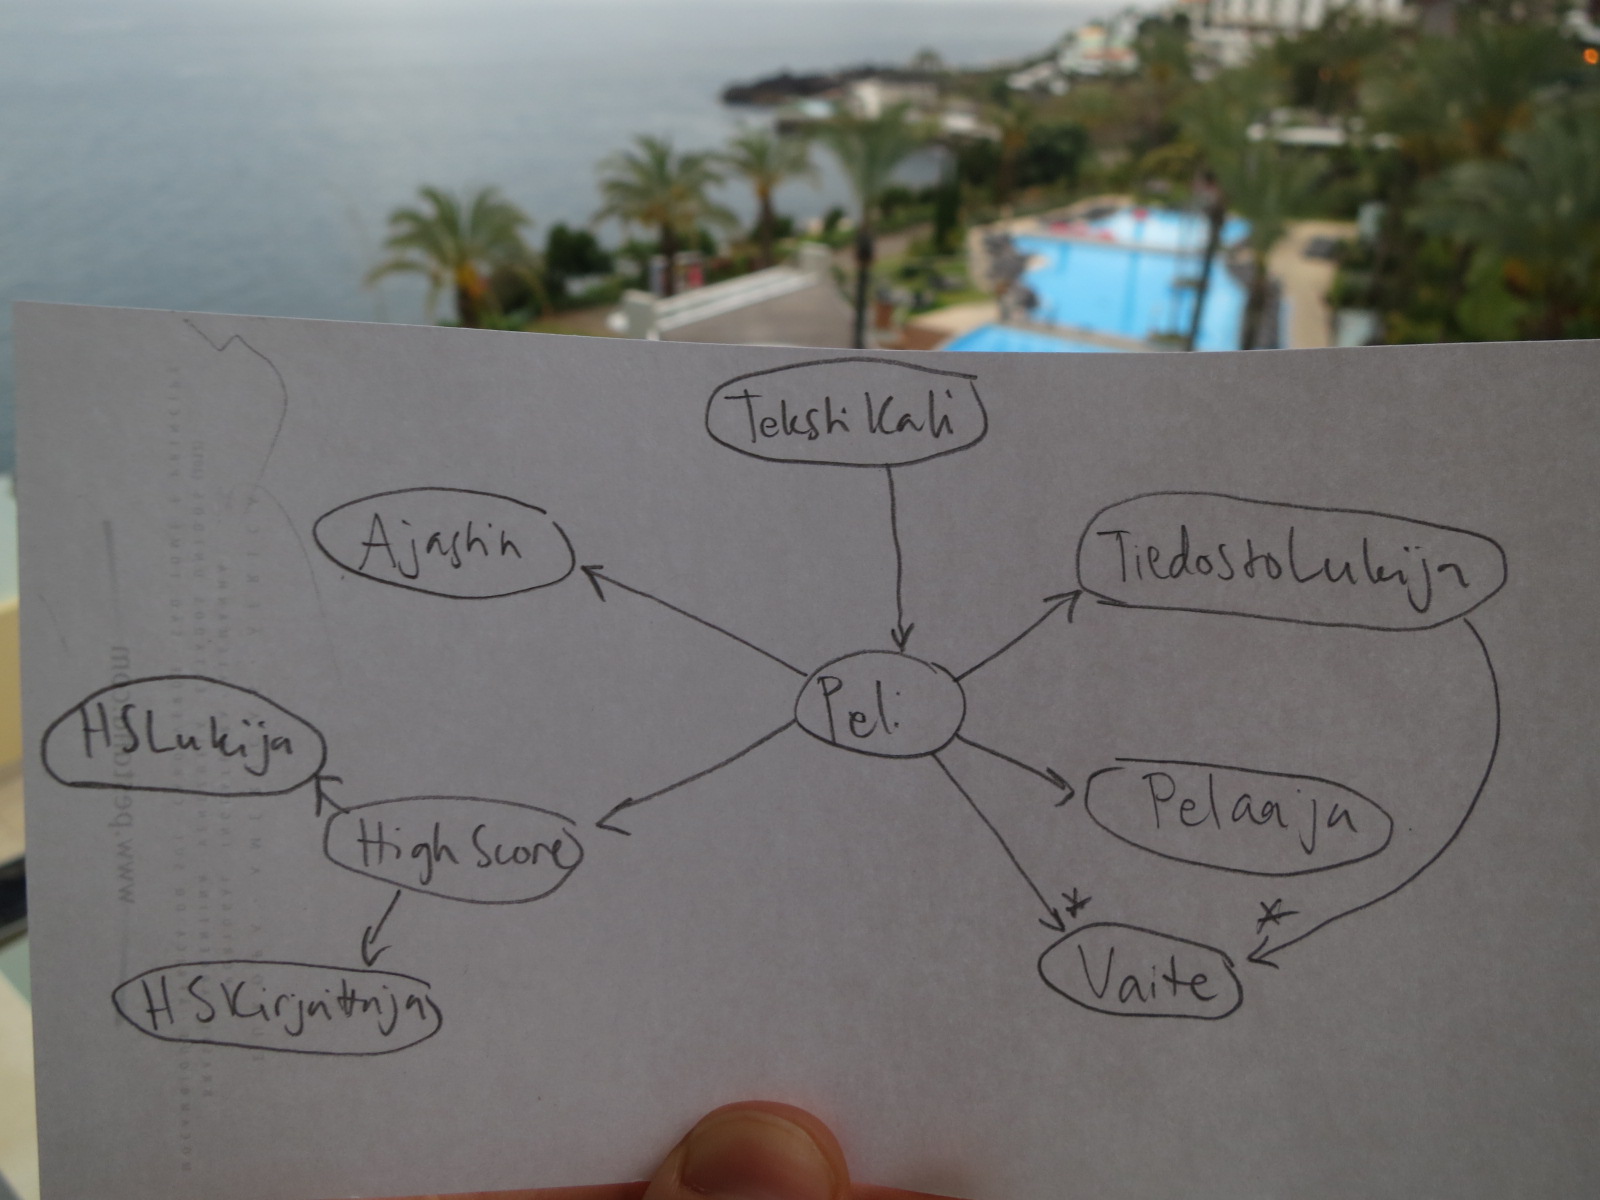 TekstiKali
Ajastin
TiedostoLukija
Peli
HSLukija
Pelaaja
HighScore
*
*
Vaite
HSKirjoittaja